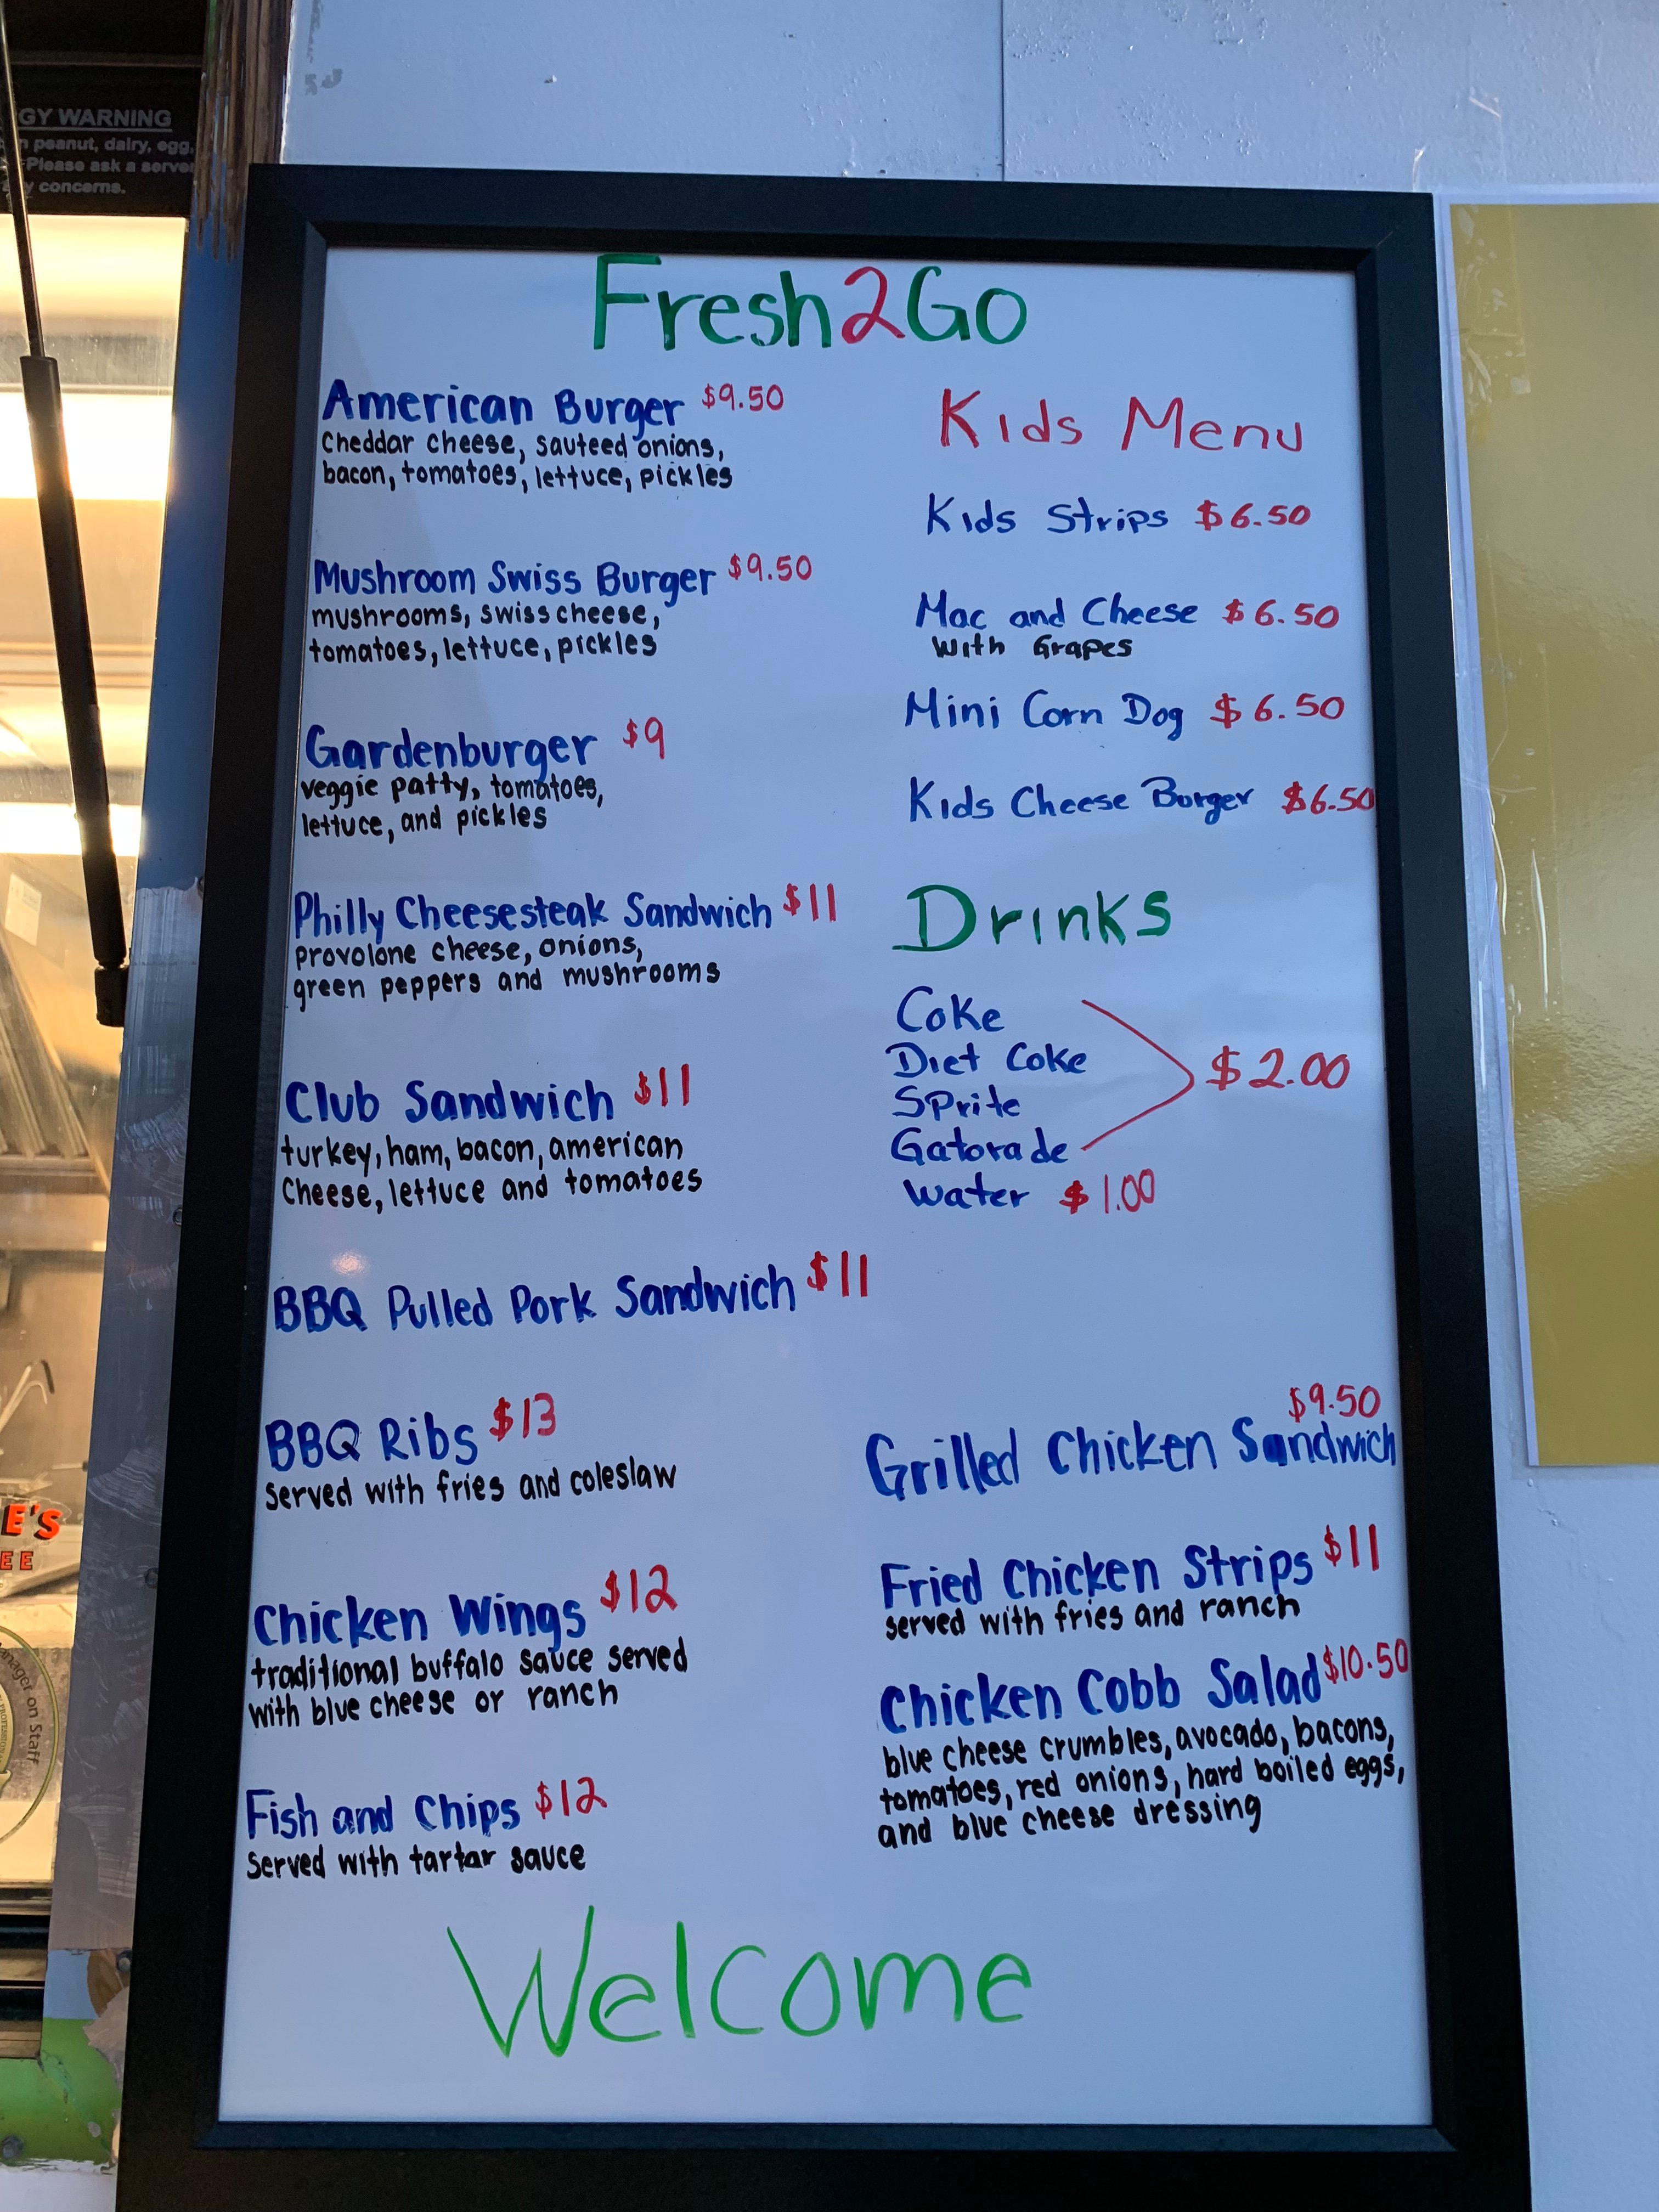 GY WARNING
peanut, dairy, egg,
Please ask a server
concerns.
Fresh2Go
American Burger $9.50
cheddar cheese, sauteed onions,
bacon, tomatoes, lettuce, pickles
Mushroom Swiss Burger $9.50
mushrooms, swiss cheese,
tomatoes, lettuce, pickles
Gardenburger $9
veggie patty, tomatoes,
lettuce, and pickles
Philly Cheesesteak Sandwich $11
provolone cheese, onions,
green peppers and mushrooms
Club Sandwich $11
turkey, ham, bacon, american
Cheese, lettuce and tomatoes
BBQ Pulled Pork Sandwich $11
BBQ Ribs $13
served with fries and coleslaw
Chicken Wings $12
traditional buffalo sauce served
with blue cheese or ranch
Fish and Chips $12
Served with tartar sauce
Kids Menu
Kids Strips $6.50
Mac and Cheese $6.50
with Grapes
Mini Corn Dog $6.50
Kids Cheese Burger $6.50
Drinks
Coke
Diet Coke
Sprite
Gatorade
$2.00
Water $1.00
$9.50
Grilled Chicken Sandwich
Fried Chicken Strips $11
served with fries and ranch
Chicken Cobb Salad $10.50
blue cheese crumbles, avocado, bacons,
tomatoes, red onions, hard boiled eggs,
and blue cheese dressing
Welcome
E'S
EE
anager on Staff